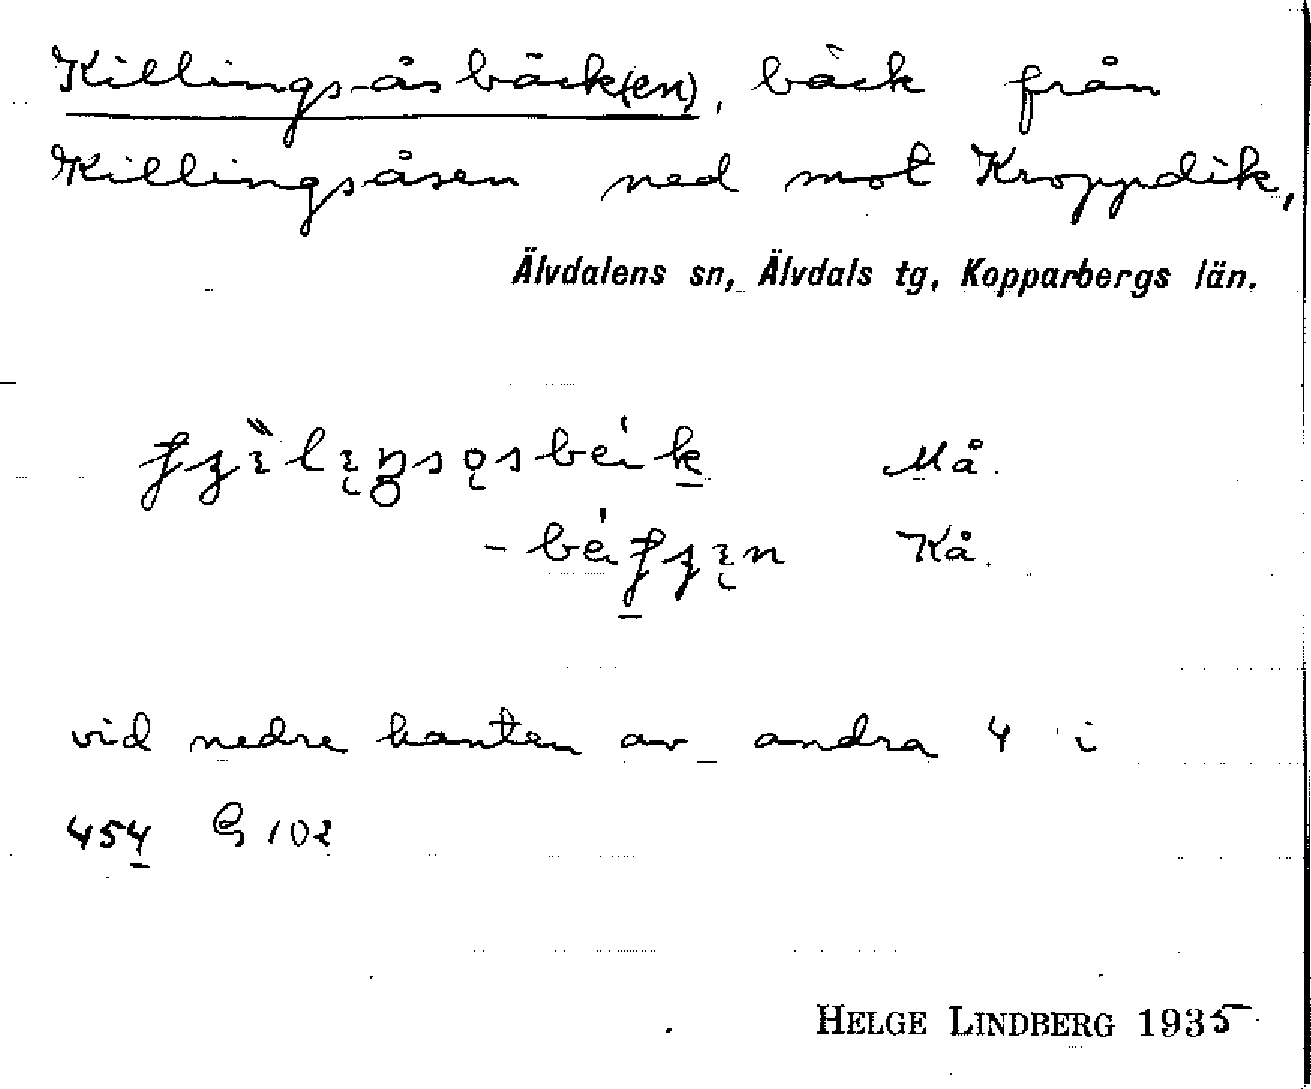 Killingsåsbäck(en), bäck från
Killingsåsen ned mot Kroppdik,
Älvdalens sn, Älvdals tg, Kopparbergs län.
Må.
Kå.
vid nedre kanten av andra 4 i
454 G 102
HELGE LINDBERG 1935